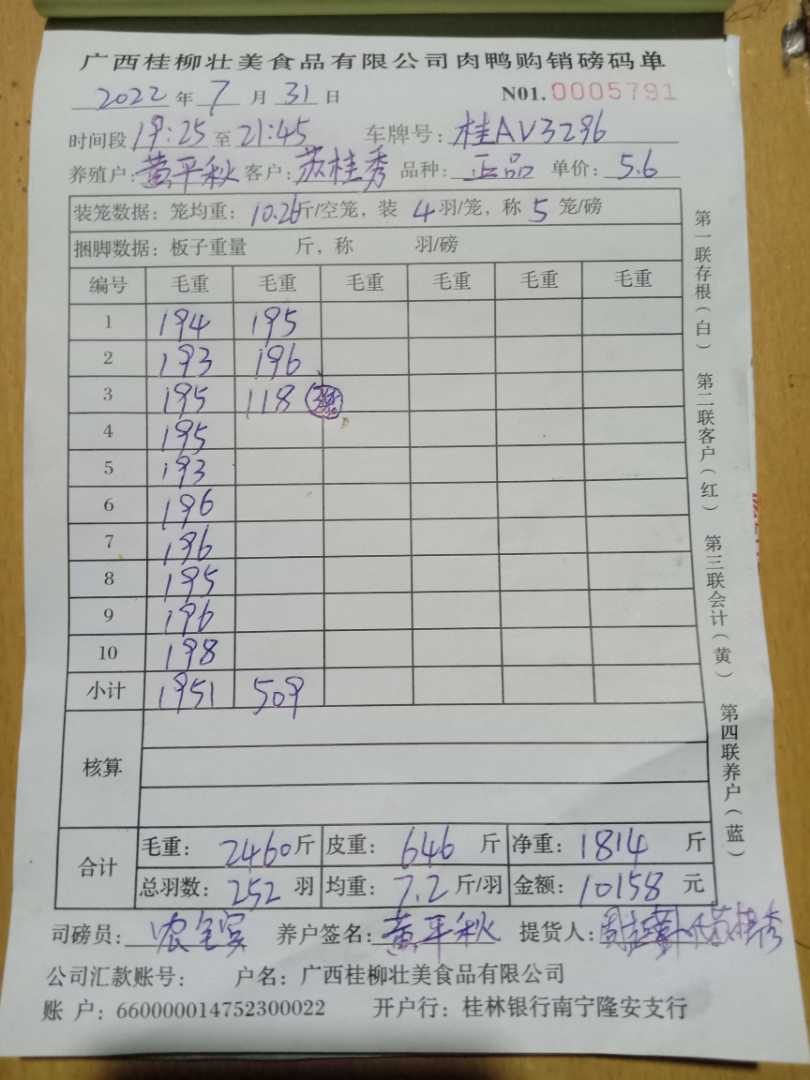 广西桂柳壮美食品有限公司肉鸭购销磅码单
2022年7月31日 N01.0005791
时间段19:25至21:45 车牌号:桂AV3296
养殖户:黄平秋 客户:苏桂秀 品种:正品 单价:5.6
装笼数据:笼均重:10.26斤/空笼,装4羽/笼,称5笼/磅
捆脚数据:板子重量 斤,称 羽/磅
编号 毛重 毛重 毛重 毛重 毛重 毛重
1 194 195
2 193 196
3 195 118
4 195
5 193
6 196
7 196
8 195
9 196
10 198
小计 1951 509
核算
合计 毛重:2460斤 皮重:646斤 净重:1814斤
总羽数:252羽 均重:7.2斤/羽 金额:10158元
司磅员:农宝宾 养户签名:黄平秋 提货人:
公司汇款账号: 户名:广西桂柳壮美食品有限公司
账 户:660000014752300022 开户行:桂林银行南宁隆安支行
第一联存根(白) 第二联客户(红) 第三联会计(黄) 第四联养户(蓝)